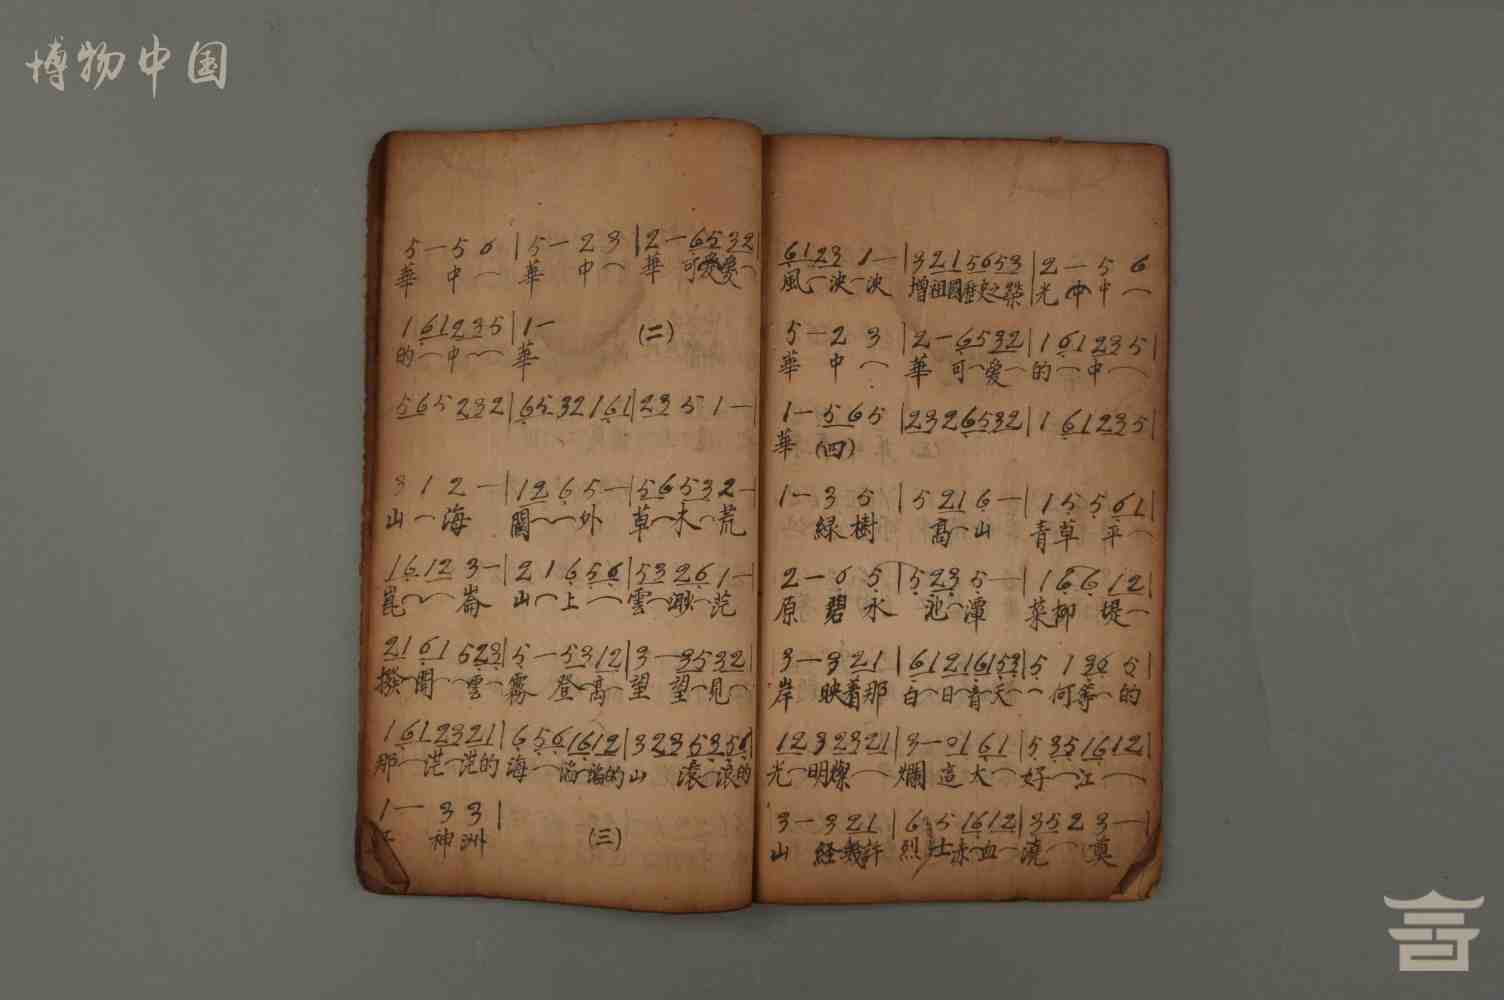 博物中国
5一5 6|5一2 3|2一6532|
華 中 華 中 華 可愛
1 61235|1一 (二)
的 中 華
565232|6532161|23 5 1一
3 1 2 一|1265一|56532一
山 海 關 外 草木荒
1612 3一|2 1 656|53 26 1一
崑 崙 山上 雲 茫
2161 523|5一5312|3一3532|
撥開 雲霧 登高望 望見
1612321|6561612|3235356|
那 茫茫的 海 滔滔的山 滾滾的
1一 3 3|
江 神洲 (三)
6123 1一|3215653|2一 5 6
風 泱泱 增祖國歷史之榮 光 中 中
5一2 3|2一6532|1 61235|
華 中 華 可愛 的 中
1一565|2326532|1 61235|
華 (四)
1一3 5|5 21 6一|1 5 5 61|
綠樹 高山 青草 平
2一6 5|5235一|1 6 6 12|
原 碧水 池潭 菜柳 堤
3一321|61216153|5 1 36 5|
岸 映着那 白日青天 何等的
1232321|3一2161|5351612|
光明燦 爛 這大好江
3一321|651612|3523一|
山 經幾許 烈士赤血 澆 奠